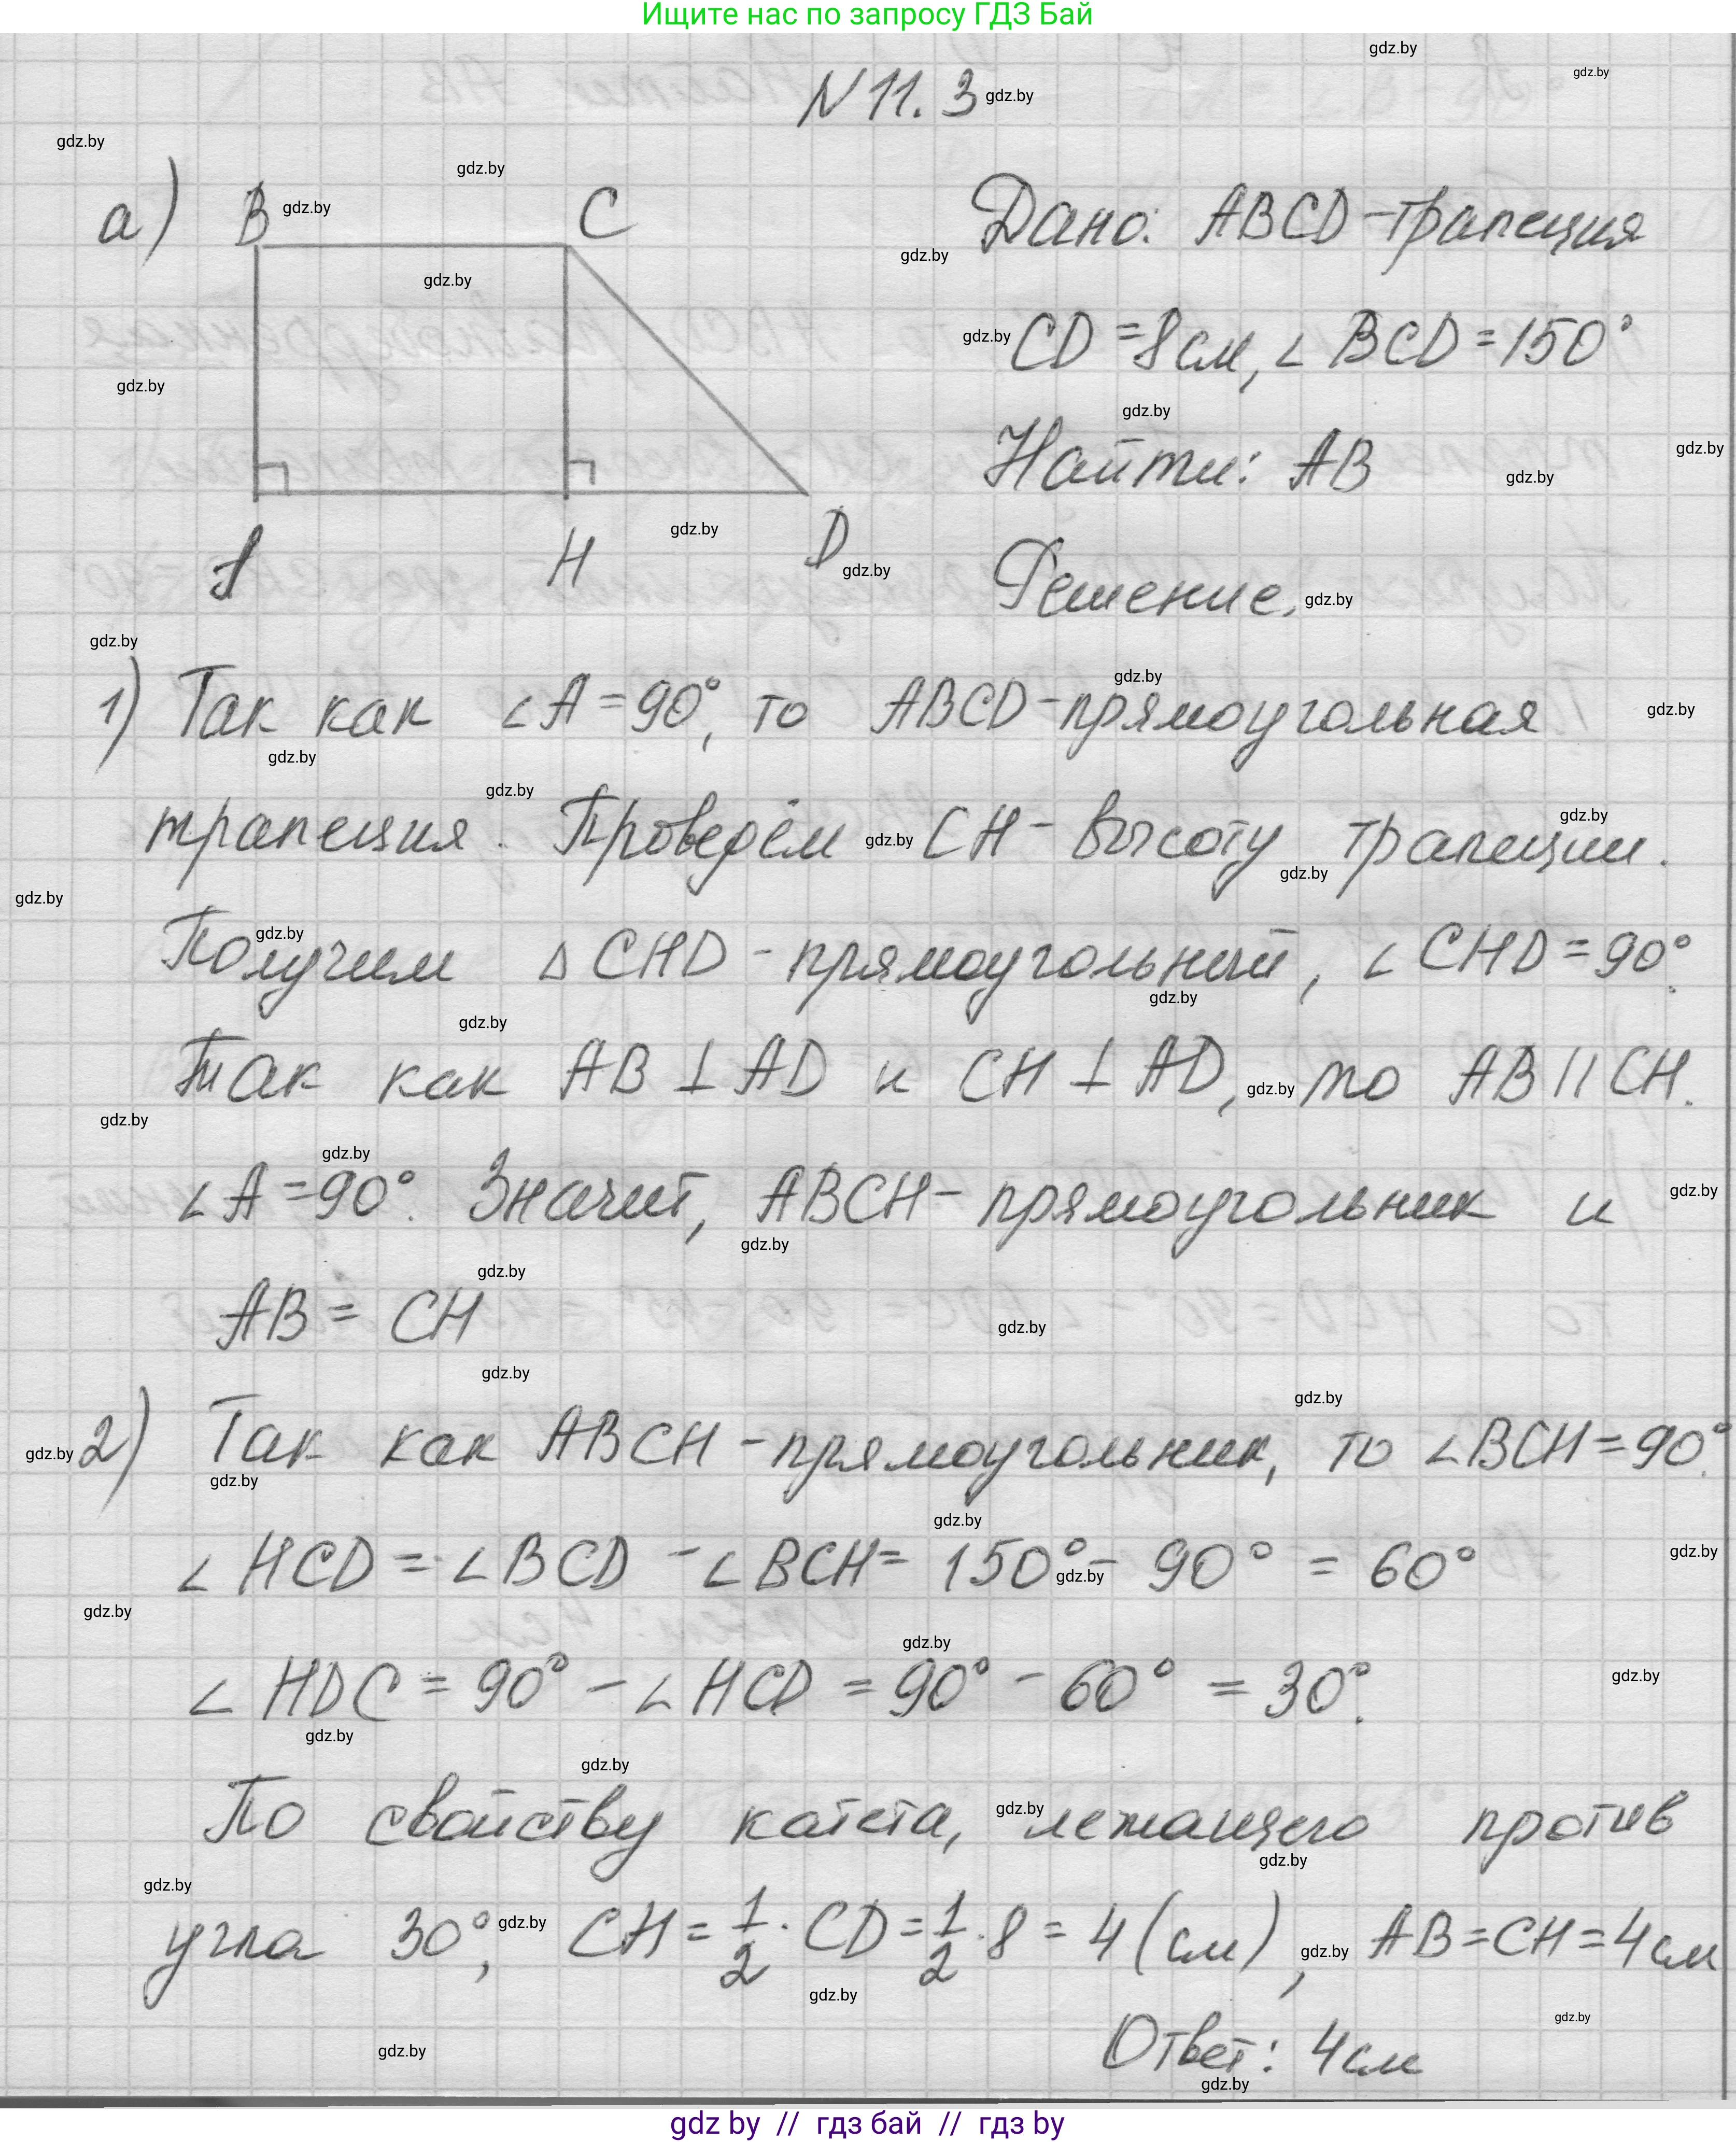 Ищите нас по запросу ГДЗ Бай
N 11. 3
а) B C
A H D
Дано: ABCD-трапеция
CD=8см, ∠BCD=150°
Найти: AB
Решение.
1) Так как ∠A=90°, то ABCD-прямоугольная
трапеция. Проведём CH- высоту трапеции.
Получим △CHD-прямоугольный, ∠CHD=90°.
Так как AB⊥AD и CH⊥AD, то AB||CH.
∠A=90°. Значит, ABCH- прямоугольник и
AB= CH
2) Так как ABCH-прямоугольник, то ∠BCH=90°.
∠HCD=∠BCD-∠BCH= 150°- 90° = 60°
∠HDC= 90° - ∠HCD = 90° - 60° = 30°.
По свойству катета, лежащего против
угла 30°, CH= 1/2 · CD= 1/2 · 8 = 4 (см), AB=CH=4см
Ответ: 4см
gdz by // гдз бай // гдз by